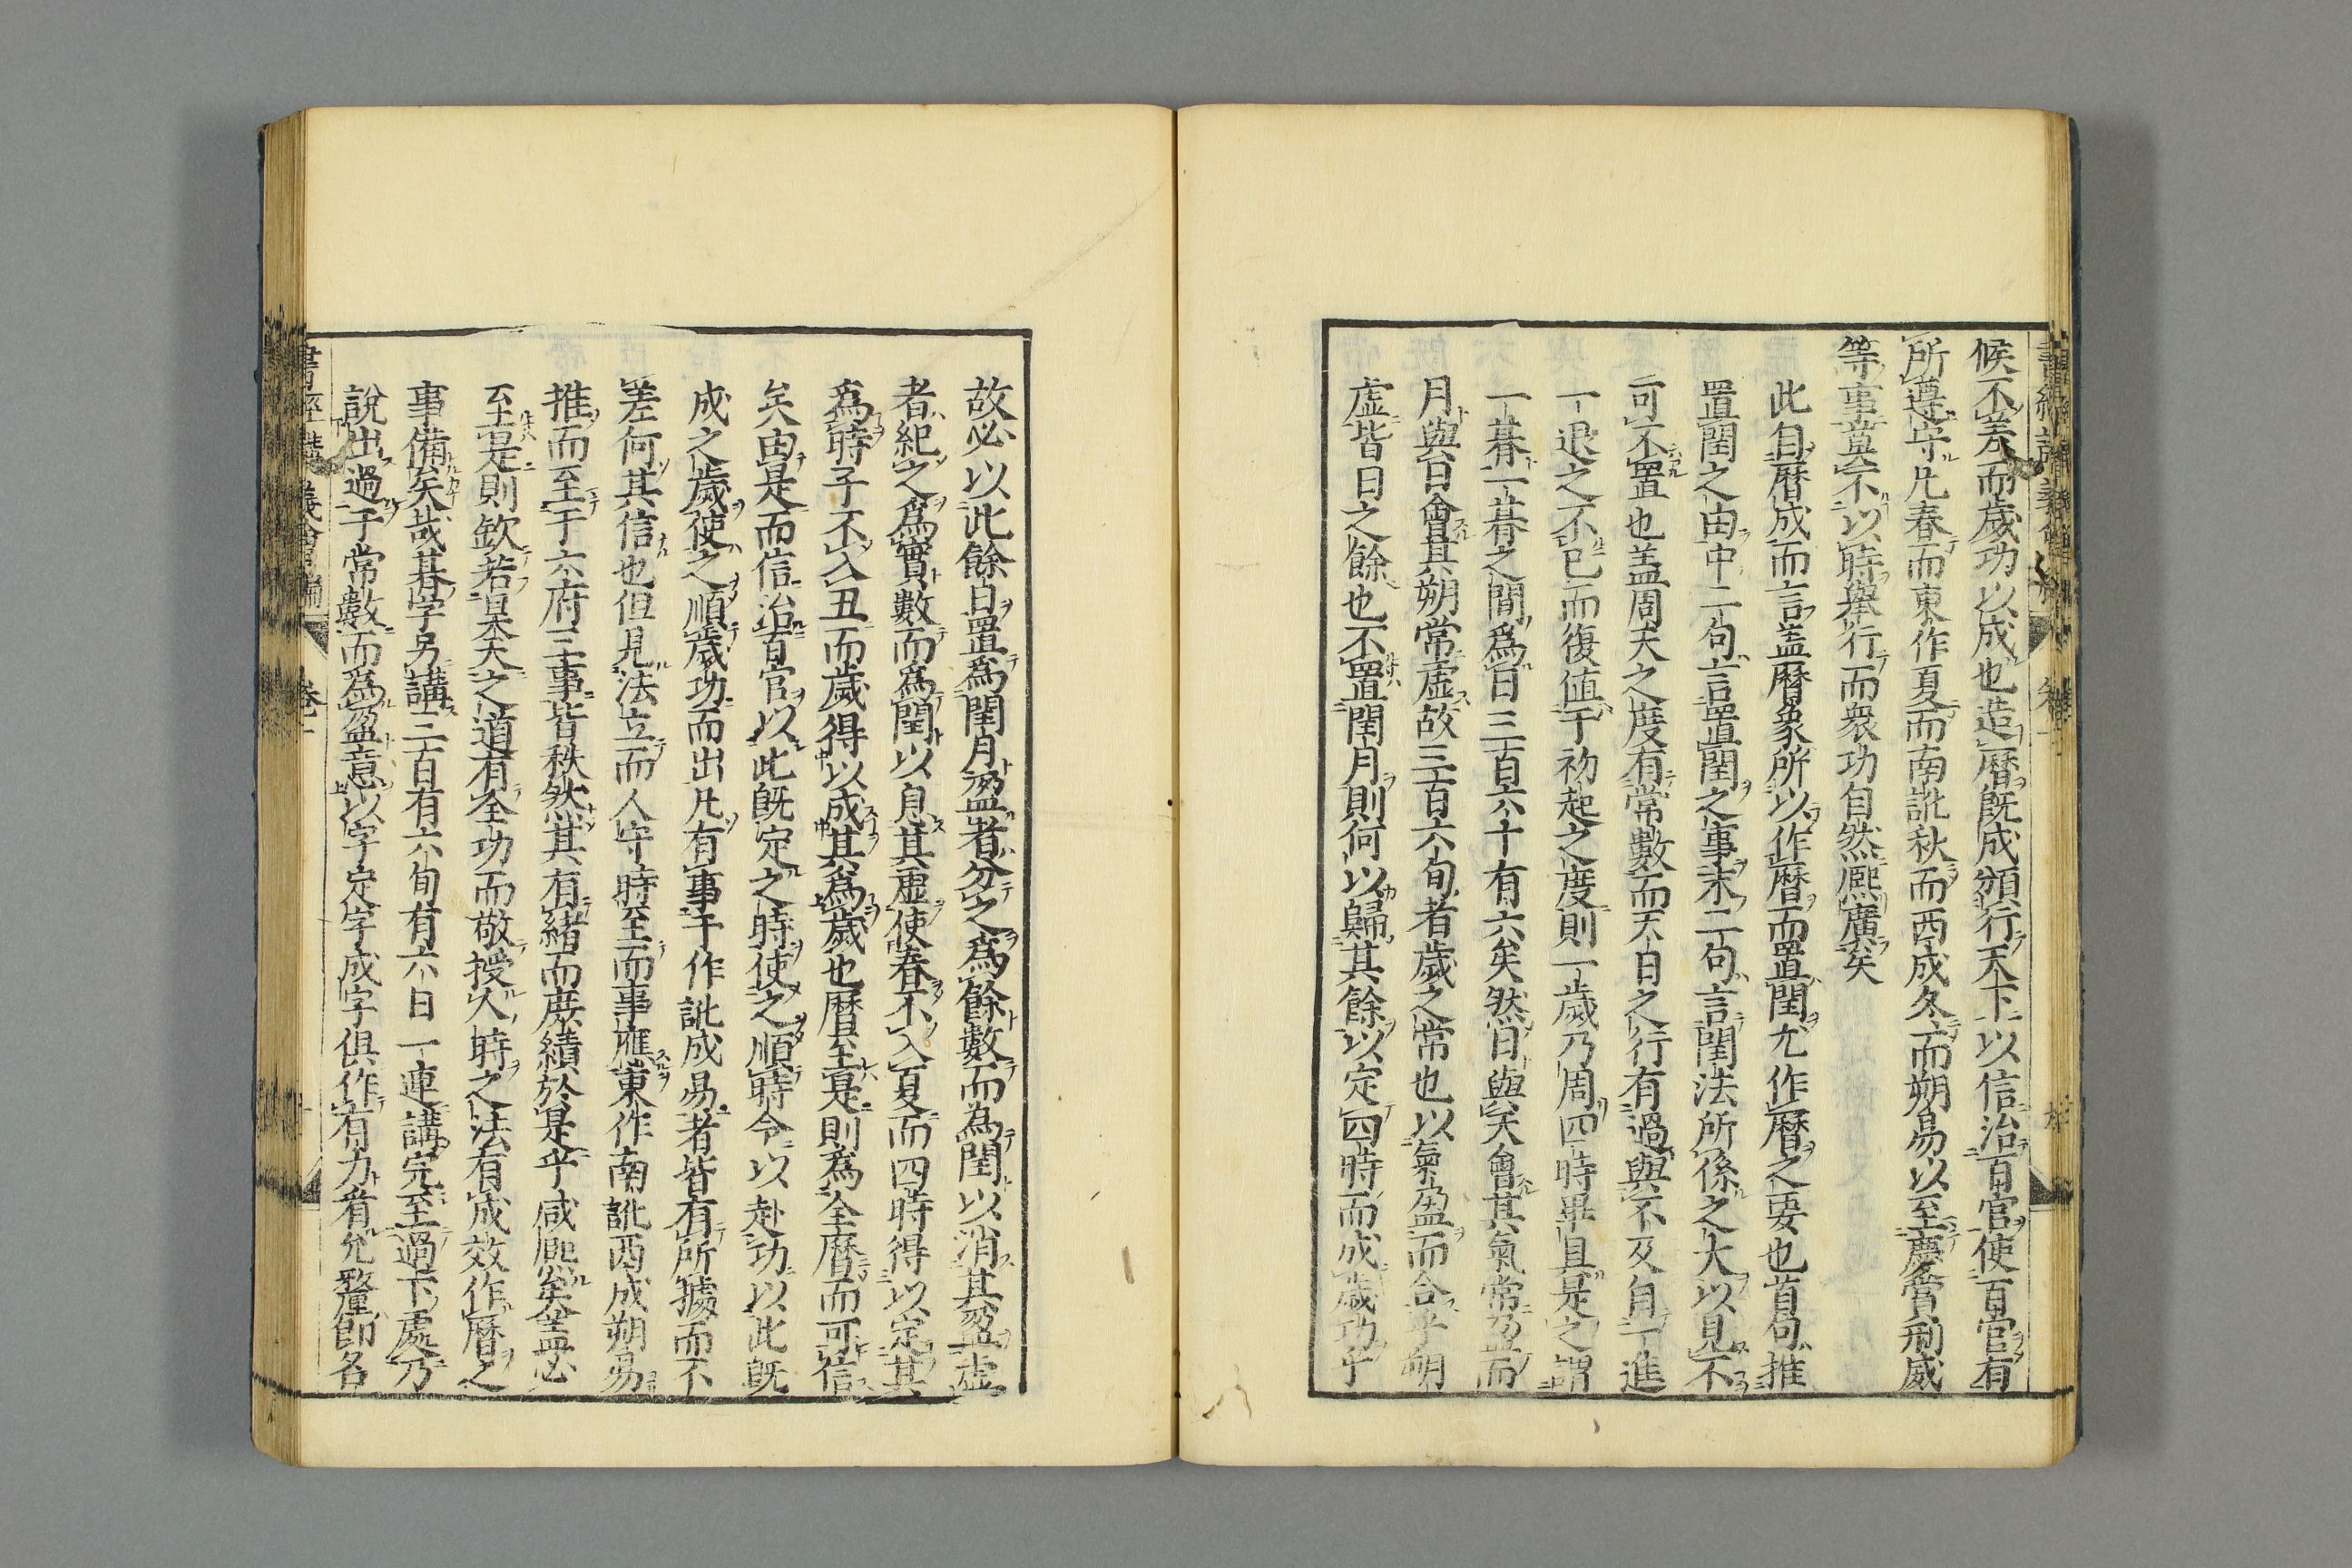 候不差而歲功以成也造曆既成頒行天下以信治百官使百官有
所遵守凡春而東作夏而南訛秋而西成冬而朔易以至慶賞刑威
等事莫不以時擧行而衆功自然熈廣矣
此自曆成而言盖曆象所以作曆而置閏尤作曆之要也首句推
置閏之由中二句言置閏之事末二句言閏法所係之大以見不
可不置也盖周天之度有常數而天日之行有過與不及自一進
一退之不已而復値于初起之度則一歲乃周四時畢具是之謂
一朞一朞之間爲日三百六十有六矣然日與天會其氣常盈而
月與日會其朔常虛故三百六旬者歲之常也以氣盈而合乎朔
虛皆日之餘也不置閏月則何以歸其餘以定四時而成歲功乎
故必以此餘日置爲閏月盈者分之爲餘數而為閏以消其盈虛
者紀之爲實數而爲閏以息其虛使春不入夏而四時得以定其
爲時子不入丑而歲得以成其爲歲也曆至是則爲全曆而可信
矣由是而信治百官以此既定之時使之順時令以赴功以此既
成之歲使之順歲功而出凡有事于作訛成易者皆有所據而不
差何其信也但見法立而人守時至而事應東作南訛西成朔易
推而至于六府三事皆秩然其有緒而庶績於是乎咸熈矣盖必
至是則欽若昊天之道有全功而敬授人時之法有成效作曆之
事備矣哉朞字另講三百有六旬有六日一連講完至過下處乃
說出過于常數而爲盈意以字定字成字俱作有力看允釐即各
書經講義會編 卷一